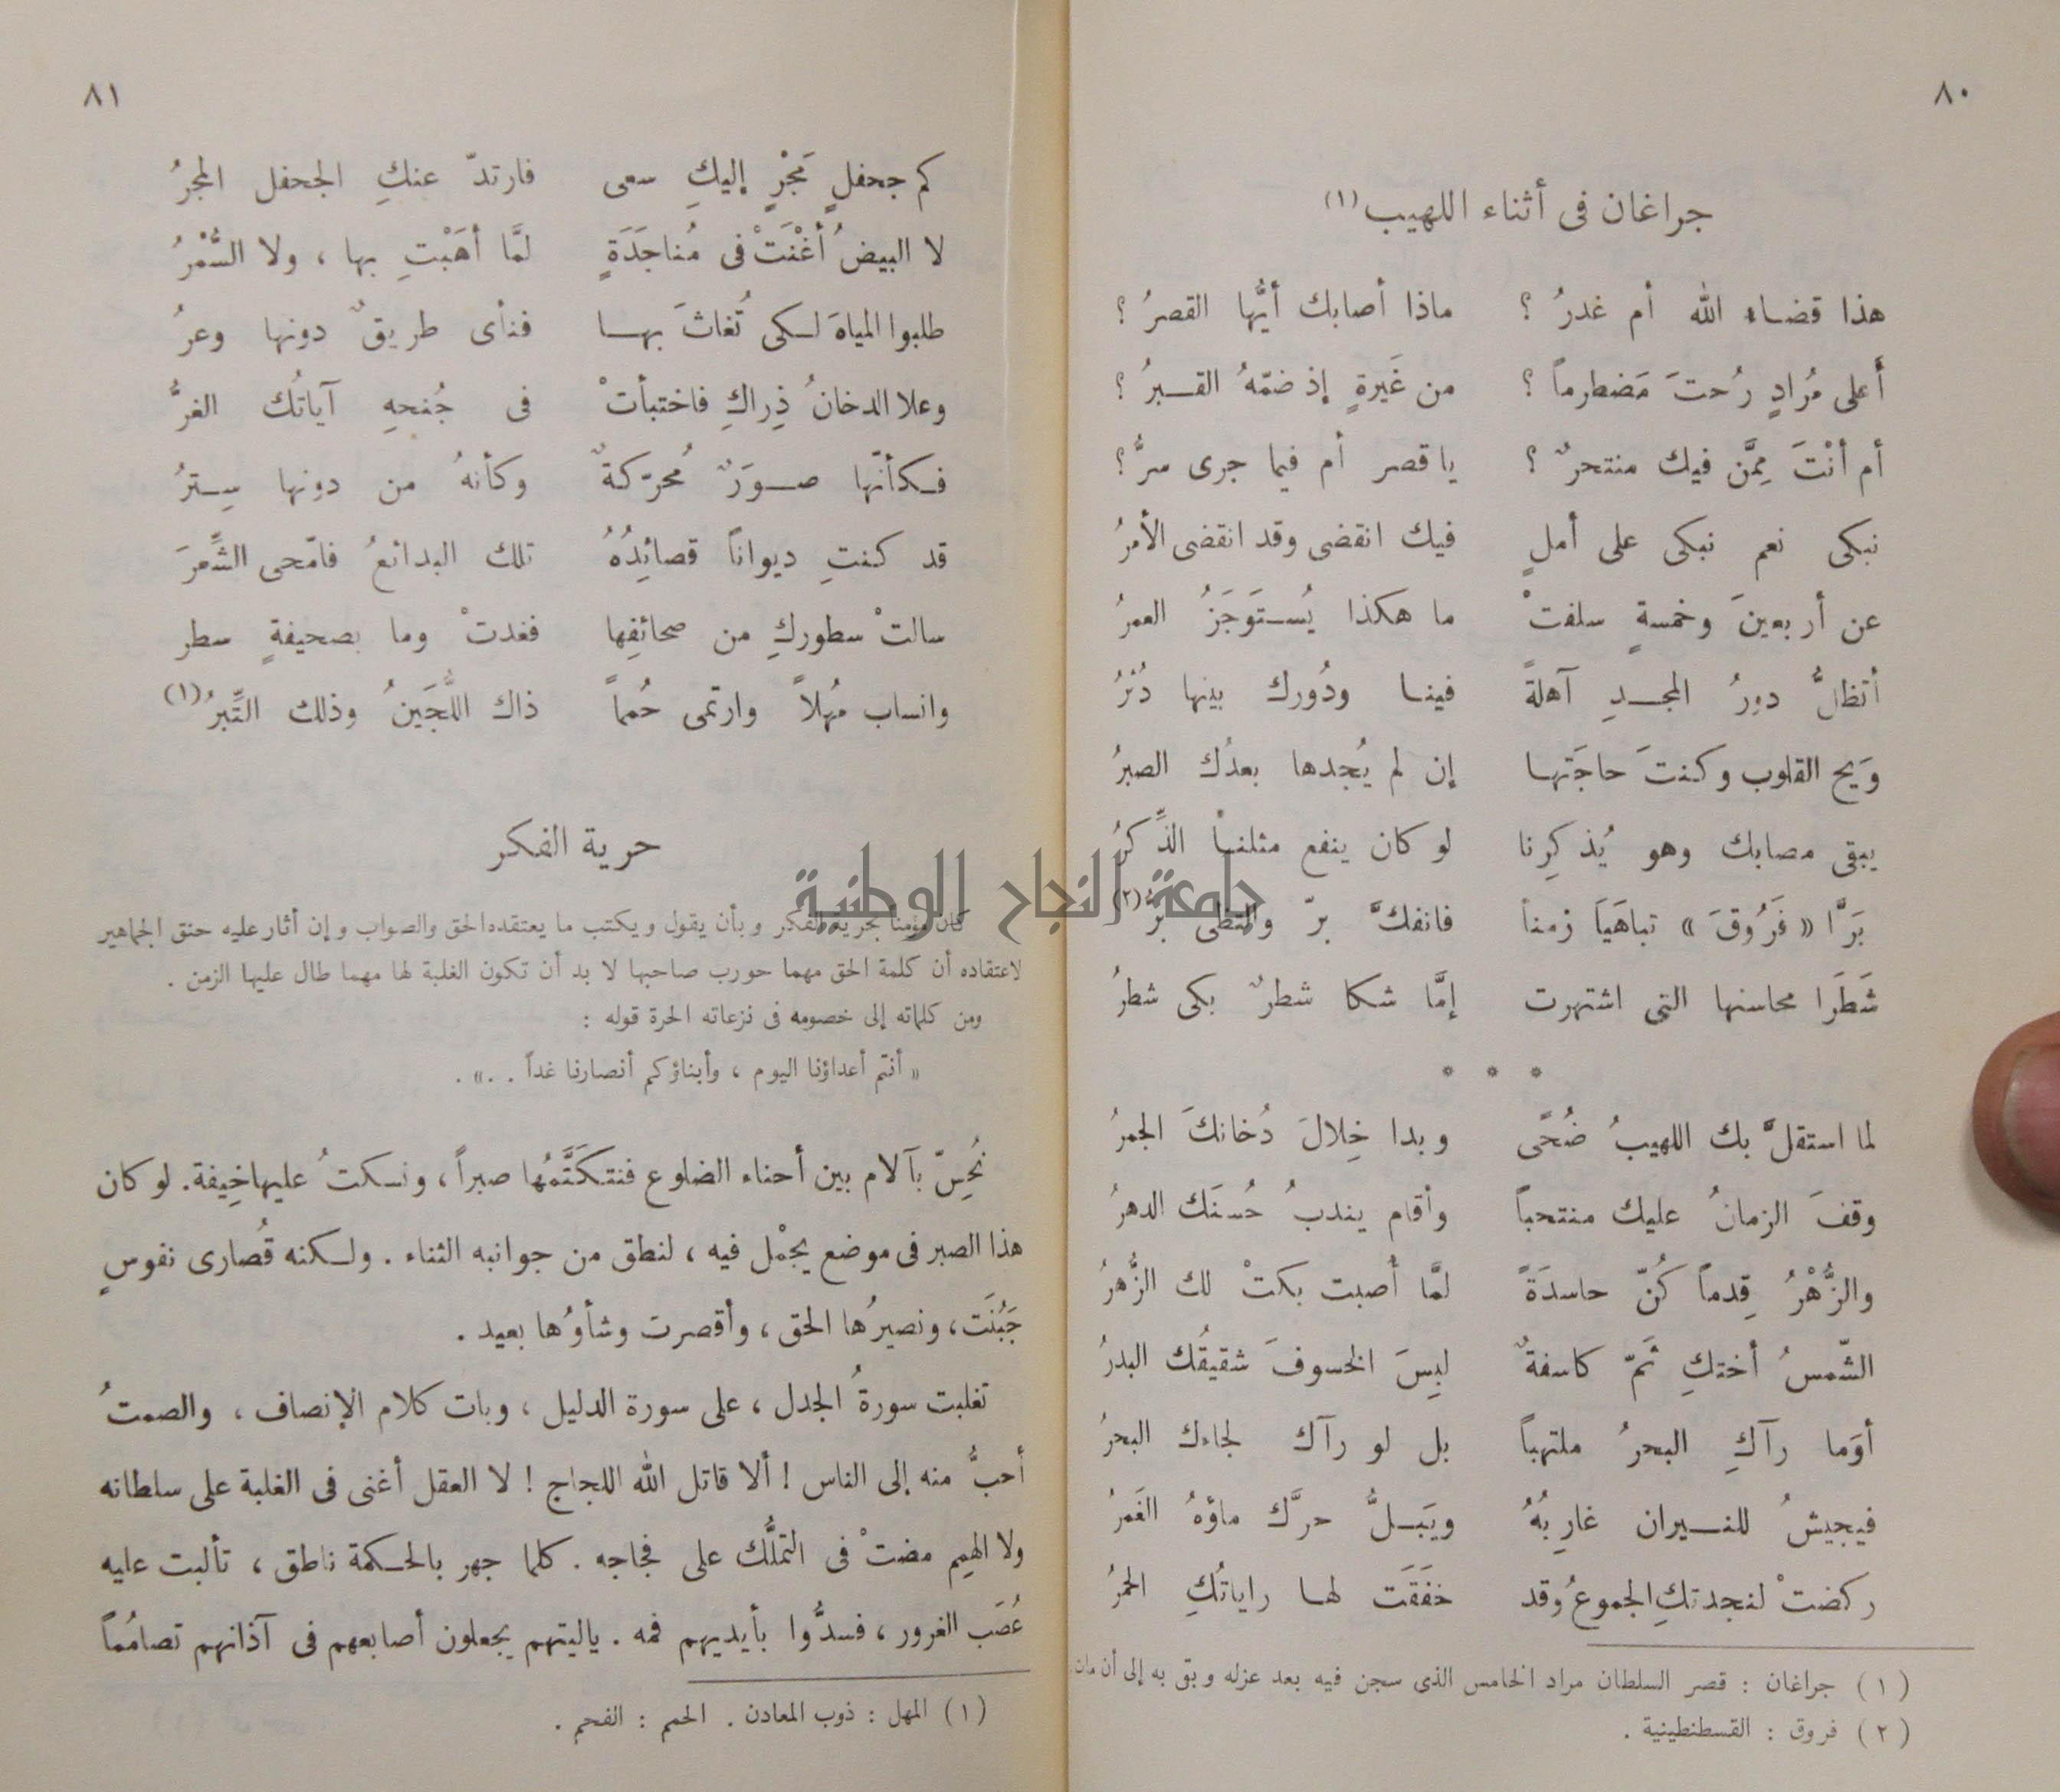 ٨٠
جراغان فى أثناء اللهيب (١)
هذا قضاء الله أم غدرُ ؟ ماذا أصابك أيُّها القصرُ ؟
أَعلى مُرادٍ رُحتَ مَضطرماً ؟ من غَيرةٍ إذ ضمّهُ القبرُ ؟
أم أنْتَ مِمَّن فيك منتحرٌ ؟ ياقصر أم فيما جرى سرُّ ؟
نبكى نعم نبكى على أملٍ فيك انقضى وقد انقضى الأمرُ
عن أربعينَ وخمسةٍ سلفتْ ما هكذا يُستَوَجَزُ العمرُ
أتظلُّ دورُ المجدِ آهلةً فينا ودُورك بينها دُثرُ
وَيح القلوب وكنتَ حاجَتها إن لم يُجدها بعدُك الصبرُ
يبقى مصابك وهو يُذكرِنا لو كان ينفع مثلنا الذِّكرُ
بَرَّا « فَرُوقَ » تباهَيَا زمناً فانفكَّ برّ والتظى بَرُّ (٢)
شَطَرَا محاسنها التى اشتهرت إمَّا شكا شطرٌ بكى شطرُ
* * *
لما استقلَّ بك اللهيبُ ضُحًى وبدا خِلالَ دُخانكَ الجمرُ
وقفَ الزمانُ عليك منتحباً وأقام يندبُ حُسنَك الدهرُ
والزُّهْرُ قِدماً كُنّ حاسدَةً لمَّا أُصبت بكتْ لك الزُّهرُ
الشّمسُ أختكِ ثَمّ كاسفةٌ لبِسَ الخسوفَ شقيقُك البدرُ
أوَما رآكِ البحرُ ملتهباً بل لو رآك لجاءك البحرُ
فيجيشُ للنيران غارِبُهُ ويَبلُّ حرَّك ماؤهُ الغَمرُ
ركضتْ لنجدتكِ الجموعُ وقد خفَقَت لها راياتُكِ الحمرُ
(١) جراغان : قصر السلطان مراد الخامس الذى سجن فيه بعد عزله وبقى به إلى أن مات
(٢) فروق : القسطنطينية .
٨١
كم جحفلٍ مَجْرٍ إليكِ سعى فارتدّ عنكِ الجحفل المجرُ
لا البيضُ أغْنَتْ فى مُناجَدَةٍ لمَّا أهَبْتِ بها ، ولا السُّمْرُ
طلبوا المياهَ لكى تُغاثَ بها فنأى طريقٌ دونها وعرُ
وعلا الدخانُ ذِراكِ فاختبأتْ فى جُنحهِ آياتُك الغرُّ
فكأنّها صورٌ مُحرّكةٌ وكأنهُ من دونها سِترُ
قد كنتِ ديواناً قصائِدُهُ تلك البدائعُ فامّحى الشِّعرَ
سالتْ سطوركِ من صحائفِها فغدتْ وما بصحيفةٍ سطر
وانساب مُهلاً وارتمى حُمماً ذاك اللُّجَينُ وذلك التِّبرُ (١)
حرية الفكر
كان مؤمنا بحرية الفكر وبأن يقول ويكتب ما يعتقده الحق والصواب وإن أثار عليه حنق الجماهير
لاعتقاده أن كلمة الحق مهما حورب صاحبها لا بد أن تكون الغلبة لها مهما طال عليها الزمن .
ومن كلماته إلى خصومه فى نزعاته الحرة قوله :
« أنتم أعداؤنا اليوم ، وأبناؤكم أنصارنا غداً . . » .
نُحِسّ بآلام بين أحناء الضلوع فنتكَتَّمُها صبراً ، ونسكتُ عليها خِيفة. لو كان
هذا الصبر فى موضع يجمُل فيه ، لنطق من جوانبه الثناء . ولكنه قُصارى نفوسٍ
جَبُنَت ، ونصيرُها الحق ، وأقصرت وشأوُها بعيد .
تغلبت سورةُ الجدل ، على سورة الدليل ، وبات كلام الإنصاف ، والصمتُ
أحبُّ منه إلى الناس ! ألا قاتل الله اللجاج ! لا العقل أغنى فى الغلبة على سلطانه
ولا الهمِم مضتْ فى التملُّك على فجاجه . كلما جهر بالحكمة ناطق ، تألبت عليه
عُصَب الغرور ، فسدُّوا بأيديهم فمه . ياليتهم يجعلون أصابعهم فى آذانهم تصامُماً
(١) المهل : ذوب المعادن . الحمم : الفحم .
جامعة النجاح الوطنية